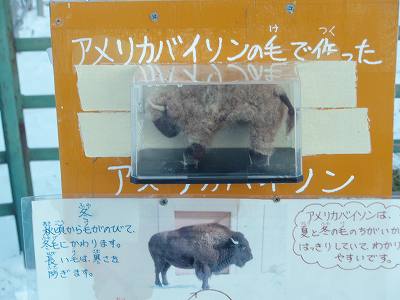 アメリカバイソンの毛で作った
アメリカバイソン
冬
秋頃から毛がのびて、
冬毛にかわります。
長い毛は、寒さを
防ぎます。
アメリカバイソンは、
夏と冬の毛のちがいが
はっきりしていて、わかり
やすいです。